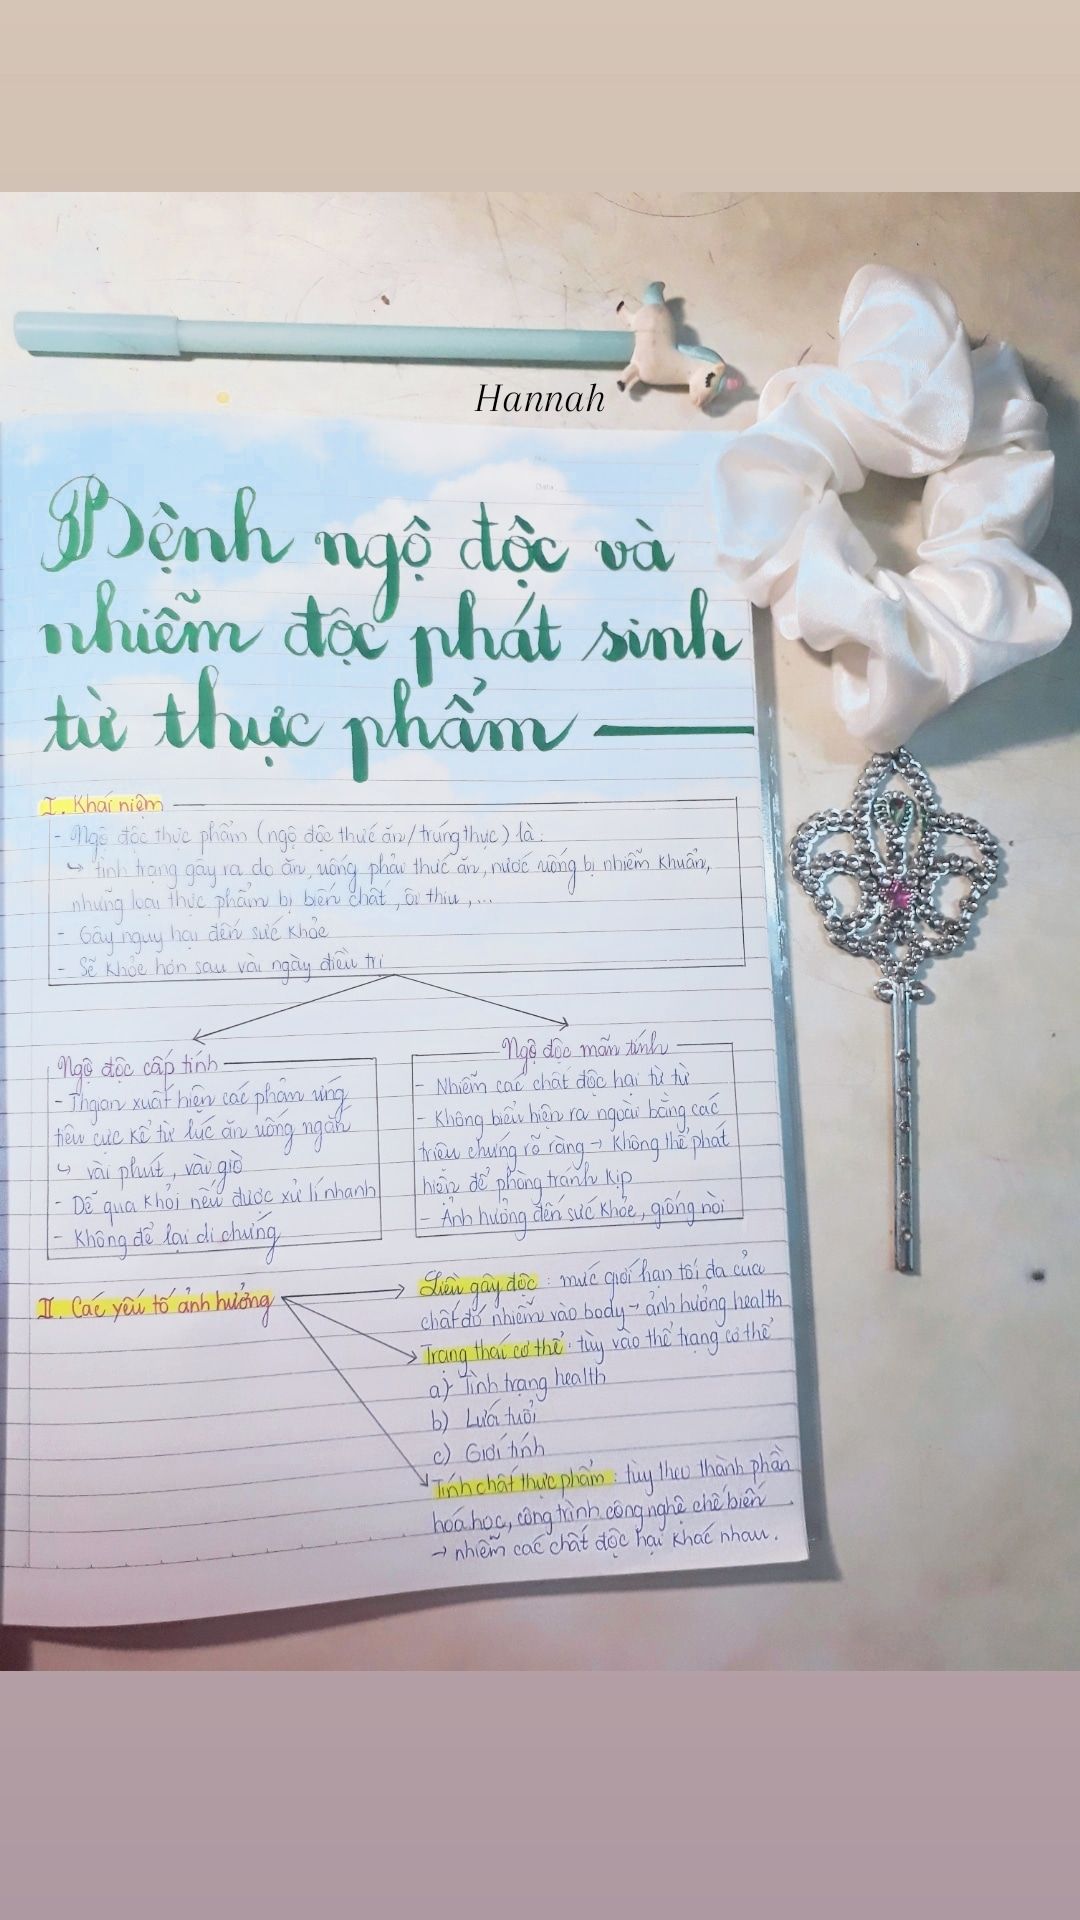 Hannah
Bệnh ngộ độc và
nhiễm độc phát sinh
từ thực phẩm
I. Khái niệm
- Ngộ độc thực phẩm (ngộ độc thức ăn/trúng thực) là:
↳ tình trạng gây ra do ăn, uống phải thức ăn, nước uống bị nhiễm khuẩn,
những loại thực phẩm bị biến chất, ôi thiu,...
- Gây nguy hại đến sức khỏe
- Sẽ khỏe hơn sau vài ngày điều trị
Ngộ độc cấp tính
- Thgian xuất hiện các phản ứng
tiêu cực kể từ lúc ăn uống ngắn
↳ vài phút, vài giờ
- Dễ qua khỏi nếu được xử lí nhanh
- Không để lại di chứng
Ngộ độc mãn tính
- Nhiễm các chất độc hại từ từ
- Không biểu hiện ra ngoài bằng các
triệu chứng rõ ràng → không thể phát
hiện để phòng tránh kịp
- Ảnh hưởng đến sức khỏe, giống nòi
II. Các yếu tố ảnh hưởng
Liều gây độc: mức giới hạn tối đa của
chất đó nhiễm vào body → ảnh hưởng health
Trạng thái cơ thể: tùy vào thể trạng cơ thể
a) Tình trạng health
b) Lứa tuổi
c) Giới tính
Tính chất thực phẩm: tùy theo thành phần
hoá học, công trình công nghệ chế biến
→ nhiễm các chất độc hại khác nhau.